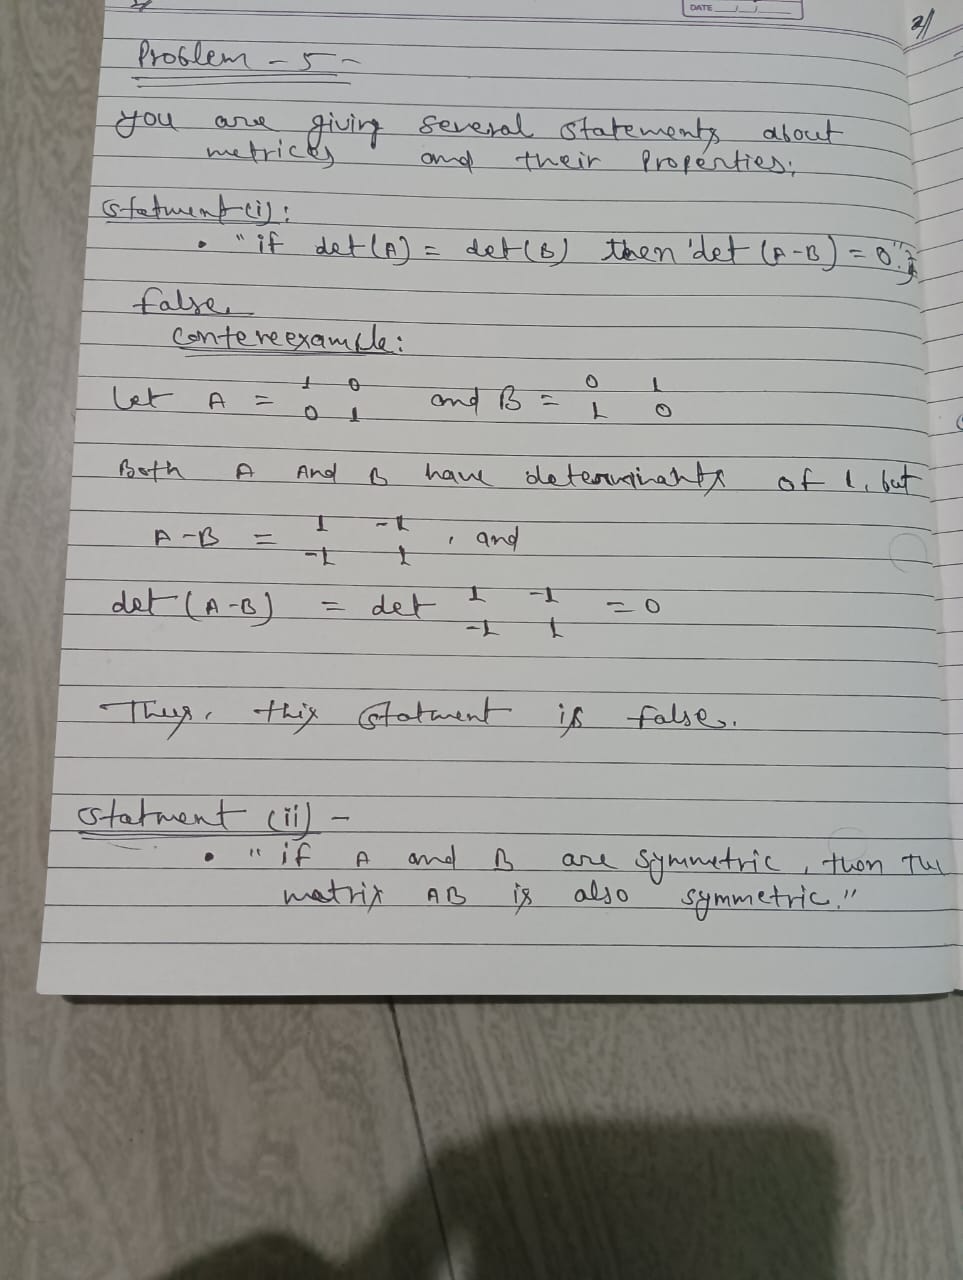 DATE
2/
Problem - 5 -
you are giving several statements about
metrices and their Properties;
Statment (i):
• "if det(A) = det(B) then 'det (A-B) = 0";
false,
contereexample:
Let A = 1 0 and B = 0 1
0 1 1 0
Both A And B have determinants of 1, but
A-B = 1 -1 , and
-1 1
det (A-B) = det 1 -1 = 0
-1 1
Thus, this Statment is false.
Statment (ii) -
• "if A and B are symmetric, then The
matrix AB is also symmetric."